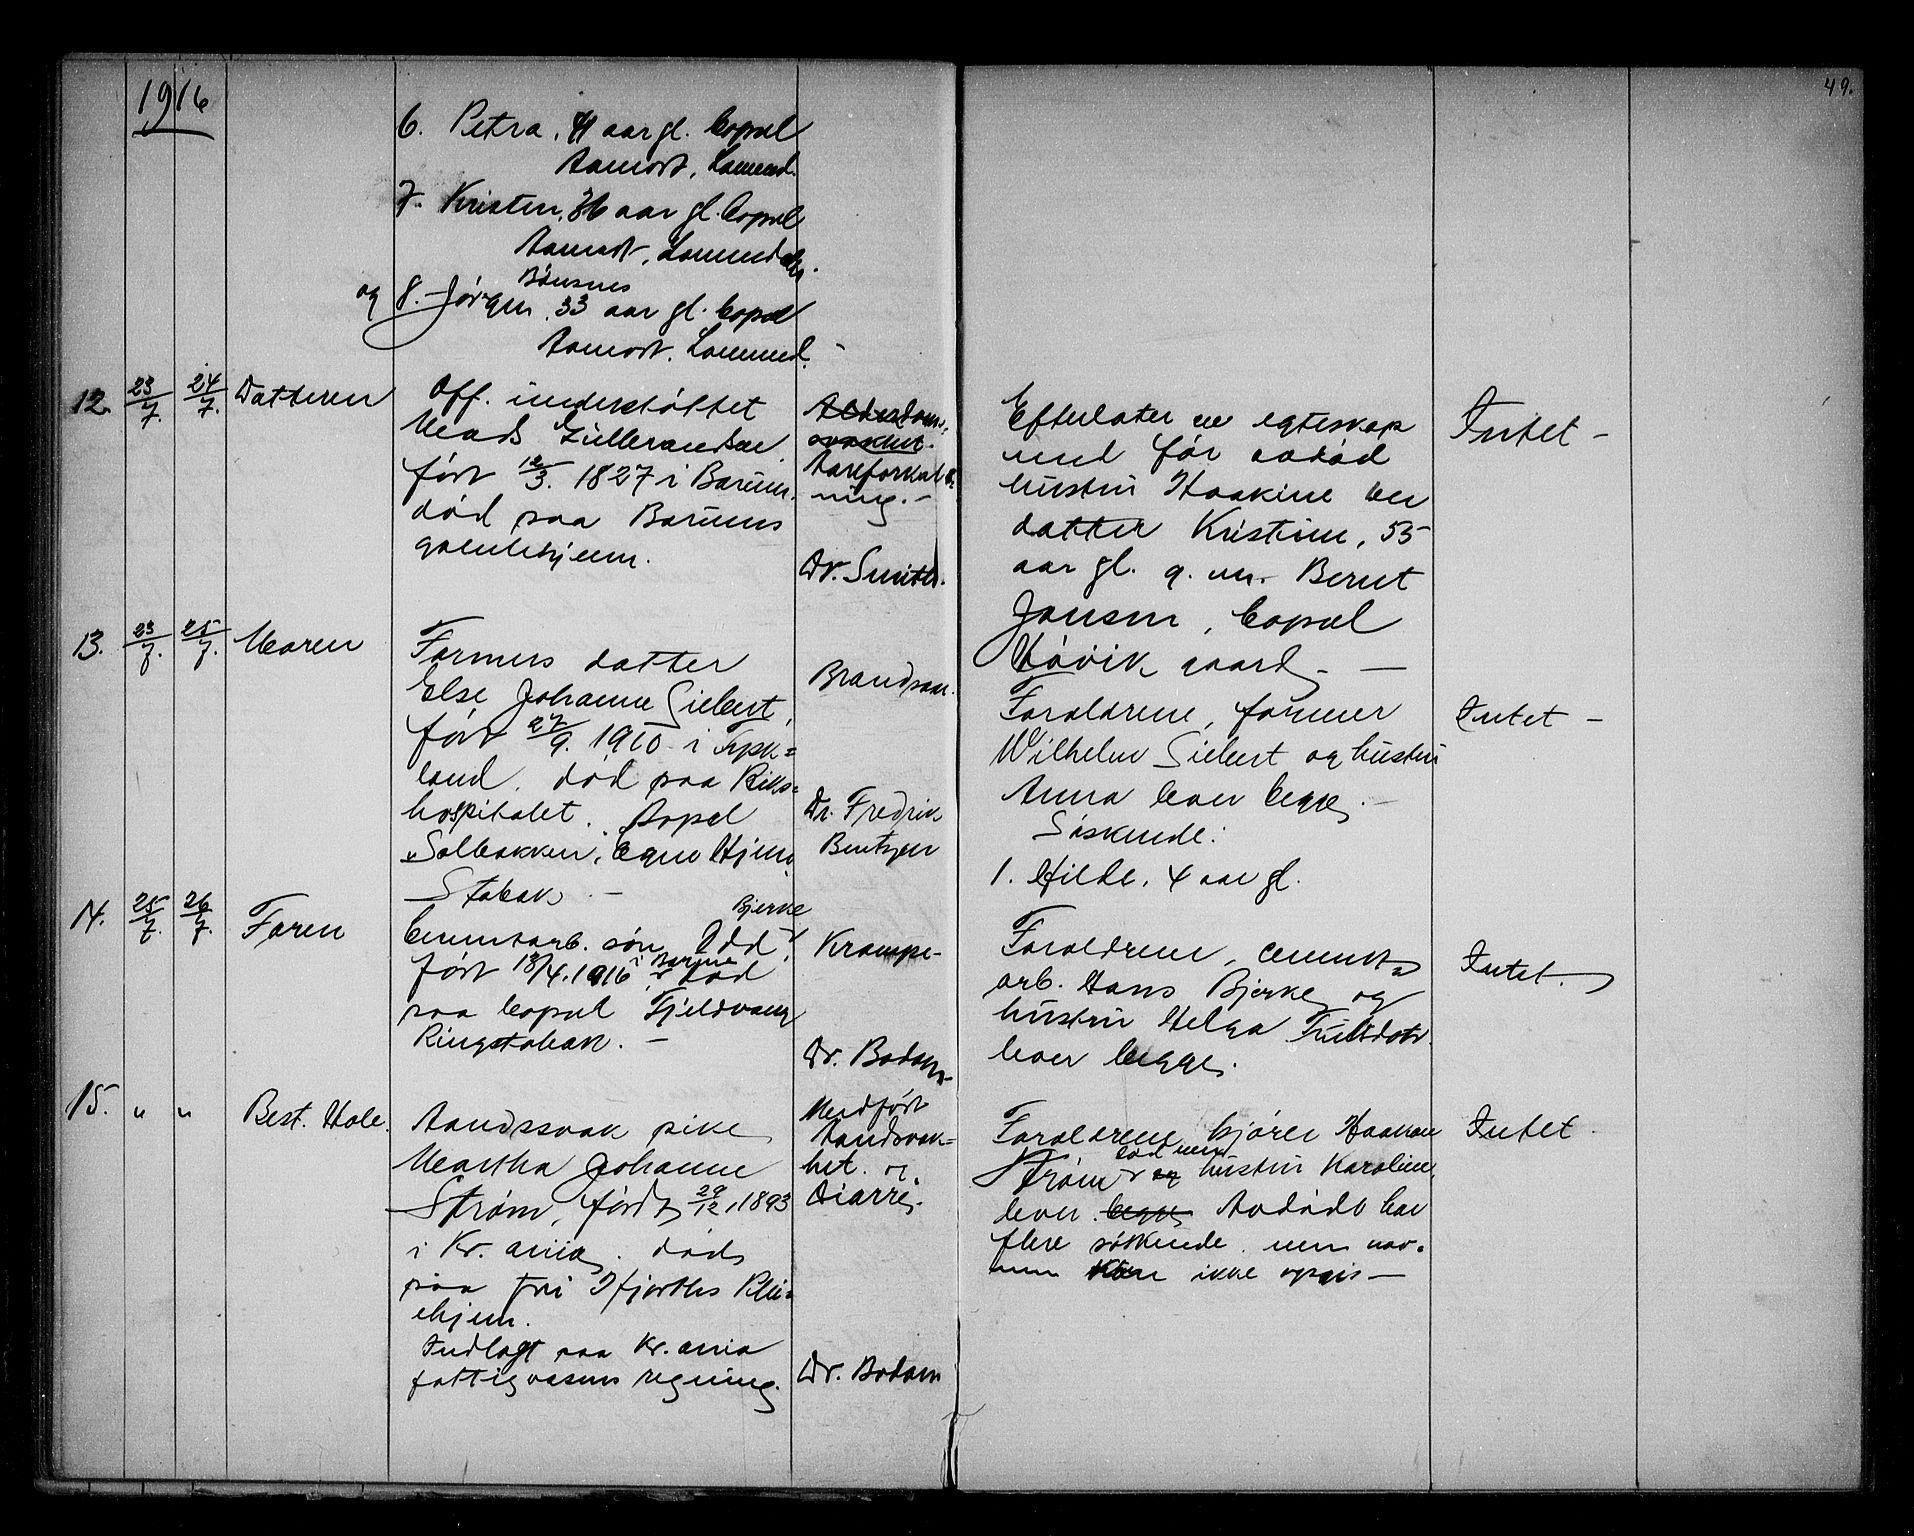 49.
1916
6. Petra, 41 aar gl. bopæl
Aamodt, Lommed.
7. Kristen, 36 aar gl. bopæl
Aamodt, Lommed
Bönsnes
og 8. Jörgen, 33 aar gl. bopæl
Aamodt, Lommed. -
12. 23/7. 24/7. Datteren
Off. understöttet
Mads Gulleransen
född 12/3. 1827 i Bærum.
död paa Bærums
gamlehjem.
Alderdoms-
svakhet.
Aareforkalk-
ning. -
Dr. Smith.
Efterlater en egteskap
med för avdöd
hustru Haakine en
datter Kristine, 55
aar gl. g. m. Bernt
Jansen, bopæl
Hövik gaard. -
Intet -
13. 23/7. 25/7. Moren
Farmers datter
Else Johanne Siebert,
född 27/9. 1910 i Tysk=
land, död paa Riks=
hospitalet. Bopæl
"Solbakken", Egne Hjem
Stabæk. -
Brandsaar.
Dr. Fredrik
Bentzen
Forældrene, farmer
Wilhelm Siebert og hustru
Anna lever begge. -
Söskende:
1. Hilde, 4 aar gl.
Intet -
14. 25/7. 26/7. Faren
Bjerke
Cementarb. sön Odd,
född 13/4. 1916 i Bærum död
paa bopæl Fjeldvang
Ringstabæk. -
Krampe -
Dr. Bodom -
Forældrene, cement=
arb. Hans Bjerke og
hustru Helga
lever begge.
Intet.
15. " " Best. Hole.
Aandssvak pike
Martha Johanne
Ström, född 29/12. 1893
i Kr.ania, död
paa fru Hjorths Plei=
ehjem.
Indlagt paa Kr.ania
fattigvæsens regning.
Medfödt
Aandsvak=
het og
Diarre.
Dr. Bodom
Forældrene kjörer Haakon
död men
Ström og hustru Karoline,
lever begge Avdöde har
flere söskende men nav-
nene ikke opgis -
Intet.